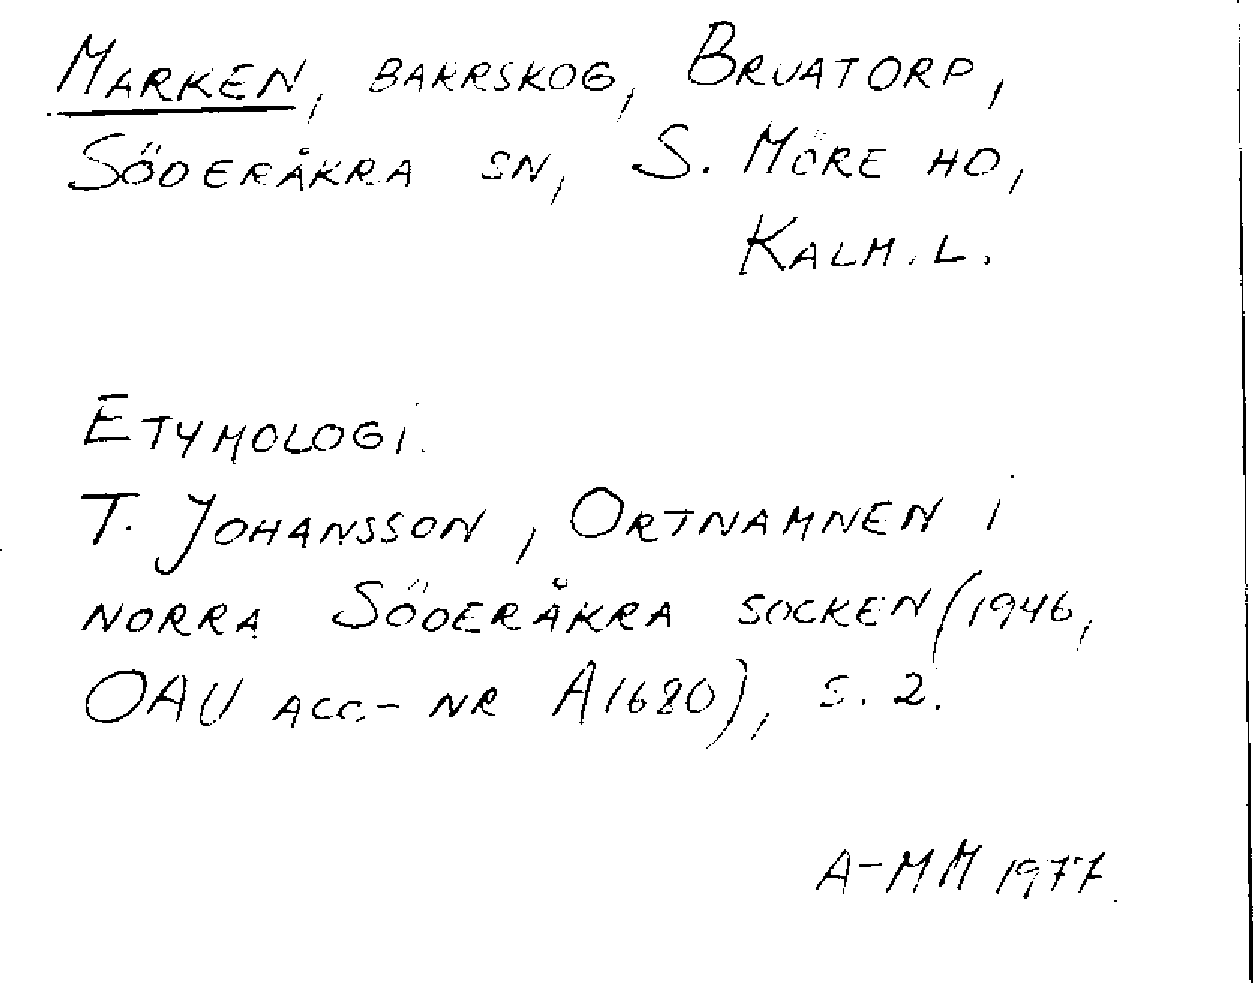 MARKEN, BARRSKOG, BRUATORP,
SÖDERÅKRA SN, S. MÖRE HD,
KALM. L.
ETYMOLOGI.
T. JOHANSSON, ORTNAMNEN I
NORRA SÖDERÅKRA SOCKEN (1946,
OAU ACC-NR A1680), S. 2.
A-MM 1977.